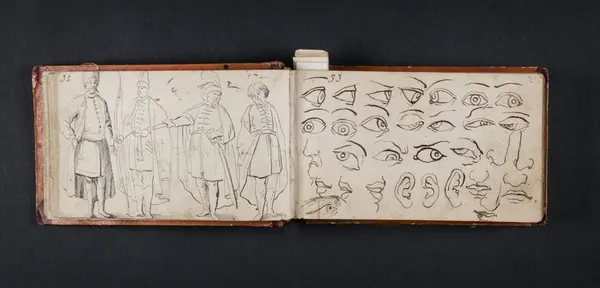 32
33